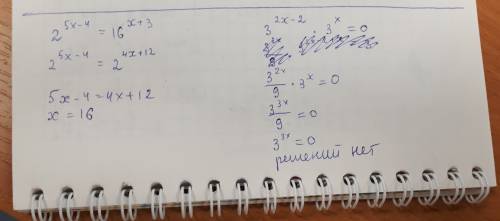 2^{5x-4} = 16^{x+3}
2^{5x-4} = 2^{4x+12}
5x-4=4x+12
x = 16
3^{2x-2} · 3^{x} = 0
3^{2x}/9 · 3^{x} = 0
3^{3x}/9 = 0
3^{3x} = 0
решений нет